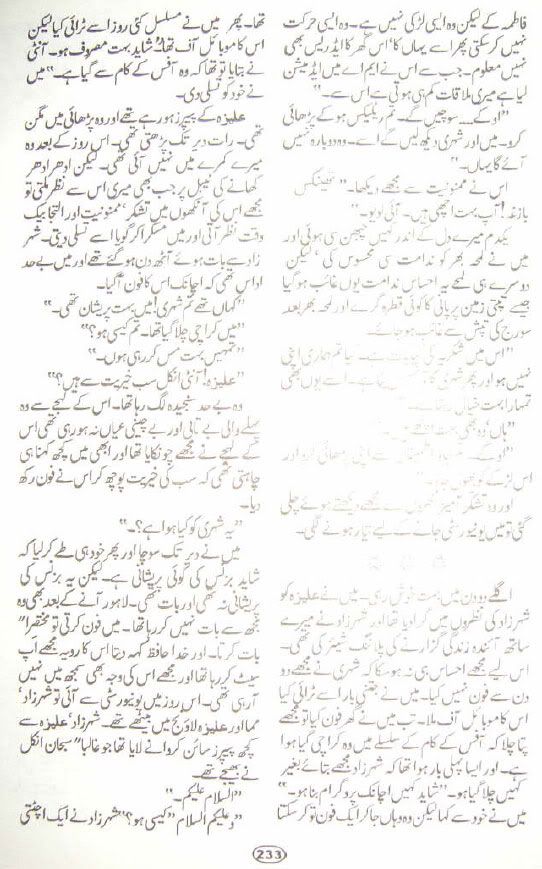 فاطمہ کے لیکن وہ ایسی لڑکی نہیں ہے۔ وہ ایسی حرکت
نہیں کر سکتی پھر اسے یہاں کا' اس گھر کا ایڈریس بھی
نہیں معلوم۔ جب سے اس نے ایم اے میں ایڈمیشن
لیا ہے میری ملاقات کم ہی ہوتی ہے اس سے۔"
"اوکے.... سوچیں گے۔ تم ریلیکس ہو کے پڑھائی
کرو۔ میں اور شہری دیکھ لیں گے اسے۔ وہ دوبارہ نہیں
آئے گا یہاں۔"
اس نے ممنونیت سے مجھے دیکھا۔ "تھینکس
بازغہ! آپ بہت اچھی ہیں۔ آئی لو یو۔"
یکدم میرے دل کے اندر کہیں چبھن سی ہوئی اور
میں نے لمحہ بھر کو ندامت سی محسوس کی' لیکن
دوسرے ہی لمحے یہ احساس ندامت یوں غائب ہو گیا
جیسے تپتی زمین پر پانی کا کوئی قطرہ گرے اور لمحہ بھر بعد
سورج کی تپش سے غائب ہو جائے۔
"اس میں شکریہ کی کیا بات ہے۔ کیا تم ہماری اپنی
نہیں ہو اور پھر شہری کا
تمہارا بہت خیال
"ہاں وہ بھی بہت اچھے
"اوکے۔ سے اپنی پڑھائی کرو اور
اس لڑکے کو بھول جاؤ۔"
اور وہ تشکر آمیز نظروں سے مجھے دیکھتے ہوئے چلی
گئی تو میں یونیورسٹی جانے کے لیے تیار ہونے لگی۔
اگلے دو دن میں بہت خوش رہی۔ میں نے علیزہ کو
شہرزاد کی نظروں میں گرا دیا تھا اور شہرزاد نے میرے
ساتھ آئندہ زندگی گزارنے کی پلاننگ شیئر کی تھی۔
اس لیے مجھے احساس ہی نہ ہو سکا کہ شہری نے مجھے دو
دن سے فون نہیں کیا۔ میں نے جتنی بار اسے ٹرائی کیا
اس کا موبائل آف ملا۔ تب میں نے گھر فون کیا تو مجھے
پتا چلا کہ آفس کے کام کے سلسلے میں وہ کراچی گیا ہوا
ہے۔ اور ایسا پہلی بار ہوا تھا کہ شہرزاد مجھے بتائے بغیر
کہیں چلا گیا ہو۔ "شاید کہیں اچانک پروگرام بنا ہو۔"
میں نے خود سے کہا لیکن وہ وہاں جا کر ایک فون تو کر سکتا
تھا۔ پھر میں نے مسلسل کئی روز اسے ٹرائی کیا لیکن
اس کا موبائل آف تھا۔ شاید بہت مصروف ہو۔ آنٹی
نے بتایا تو تھا کہ وہ آفس کے کام سے گیا ہے۔" میں
نے خود کو تسلی دی۔
علیزہ کے پیپرز ہو رہے تھے اور وہ پڑھائی میں مگن
تھی۔ رات دیر تک پڑھتی تھی۔ اس روز کے بعد وہ
میرے کمرے میں نہیں آئی تھی۔ لیکن ادھر ادھر
کھانے کی ٹیبل پر جب بھی میری اس سے نظر ملتی تو
مجھے اس کی آنکھوں میں تشکر' ممنونیت اور التجا بیک
وقت نظر آتی اور میں مسکرا کر گویا اسے تسلی دیتی۔ شہر
زاد سے بات ہوئے آٹھ دن ہو گئے تھے اور میں بے حد
اداس تھی کہ اچانک اس کا فون آگیا۔
"کہاں تھے تم شہری! میں بہت پریشان تھی۔"
"میں کراچی چلا گیا تھا۔ تم کیسی ہو؟"
"تمہیں بہت مس کر رہی ہوں۔"
"علیزہ! آنٹی انکل سب خیریت سے ہیں؟"
وہ بے حد سنجیدہ لگ رہا تھا۔ اس کے لہجے سے وہ
پہلے والی بے تابی اور بے چینی عیاں نہ ہو رہی تھی اس
کے لہجے نے مجھے چونکایا تھا اور ابھی میں کچھ کہنا ہی
چاہتی تھی کہ سب کی خیریت پوچھ کر اس نے فون رکھ
دیا۔
"یہ شہری کو کیا ہوا ہے؟۔"
میں نے دیر تک سوچا اور پھر خود ہی طے کر لیا کہ
شاید بزنس کی کوئی پریشانی ہے۔ لیکن یہ بزنس کی
پریشانی نہ تھی اور بات تھی۔ لاہور آنے کے بعد بھی وہ
مجھ سے بات نہیں کر رہا تھا۔ میں فون کرتی تو مختصراً"
بات کرتا۔ اور خدا حافظ کہہ دیتا اس کا رویہ مجھے اپ
سیٹ کر رہا تھا اور مجھے اس کی وجہ بھی سمجھ میں نہیں
آرہی تھی۔ اس روز میں یونیورسٹی سے آئی تو شہرزاد'
مما اور علیزہ لاؤنج میں بیٹھے تھے۔ شہرزاد' علیزہ سے
کچھ پیپرز سائن کروانے لایا تھا جو غالباً" سبحان انکل
نے بھیجے تھے۔
"السلام علیکم۔"
"وعلیکم السلام" کیسی ہو؟" شہرزاد نے ایک اچٹتی
233